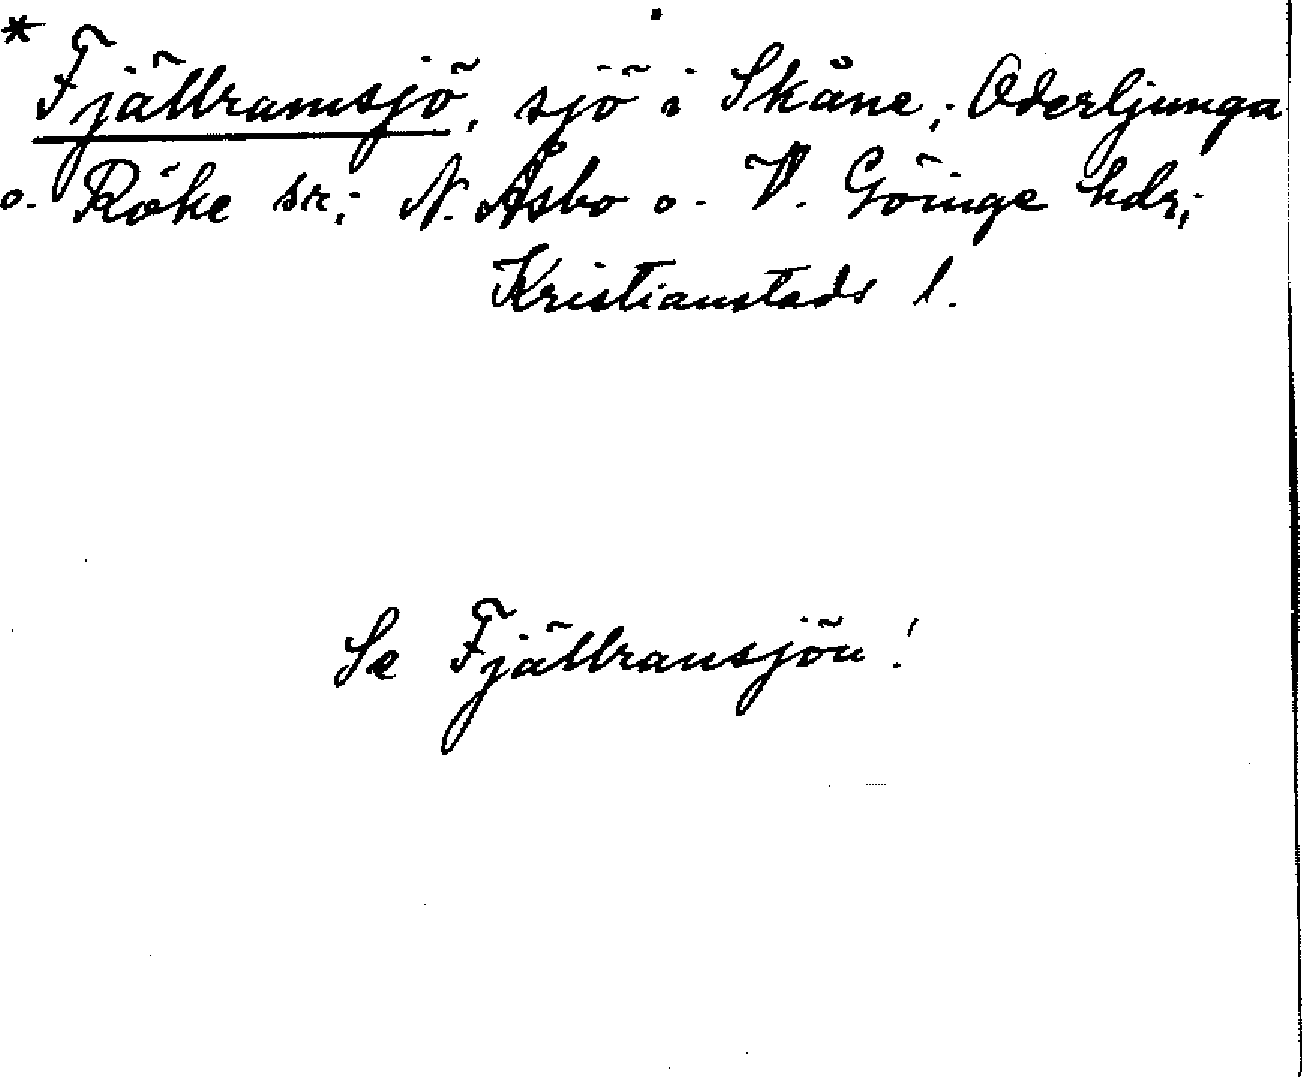 * Fjällramsjö, sjö i Skåne; Oderljunga
o. Röke sr; N. Åsbo o. V. Göinge hdr;
Kristianstads l.
Se Fjällransjön!